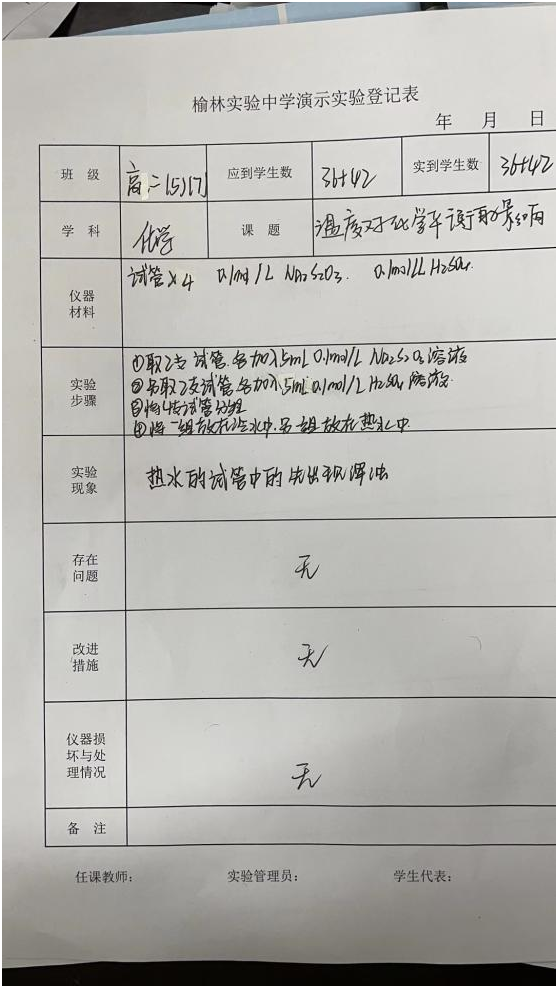 榆林实验中学演示实验登记表
年 月 日
班 级 高二(5)(7) 应到学生数 36+42 实到学生数 36+42
学 科 化学 课 题 温度对化学平衡的影响
仪器材料 试管×4 0.1mol/L Na2S2O3. 0.1mol/L H2SO4.
实验步骤
①取2支试管.各加入5mL 0.1mol/L Na2S2O3溶液
②另取2支试管各加入5mL 0.1mol/L H2SO4 溶液.
③将4支试管分组
④将一组放在冷水中.另一组放在热水中
实验现象 热水的试管中的先出现浑浊
存在问题 无
改进措施 无
仪器损坏与处理情况 无
备 注
任课教师: 实验管理员: 学生代表: